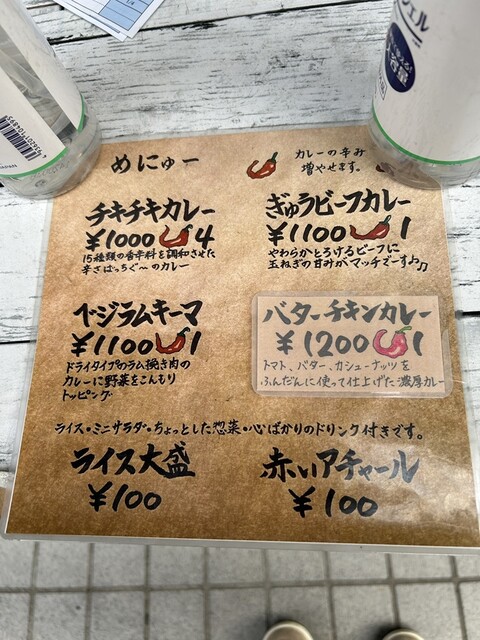 めにゅー
カレーの辛み
増やせます。
チキチキカレー
¥1000 4
15種類の香辛料を調和させた
辛さばっちぐ〜のカレー
ぎゅうビーフカレー
¥1100 1
やわらかとろけるビーフに
玉ねぎの甘みがマッチでーすよ♫
ベジラムキーマ
¥1100 1
ドライタイプのラム挽き肉の
カレーに野菜をこんもり
トッピング
バターチキンカレー
¥1200 1
トマト、バター、カシューナッツを
ふんだんに使って仕上げた濃厚カレー
ライス・ミニサラダ・ちょっとした惣菜・心ばかりのドリンク付きです。
ライス大盛
¥100
赤いアチャール
¥100